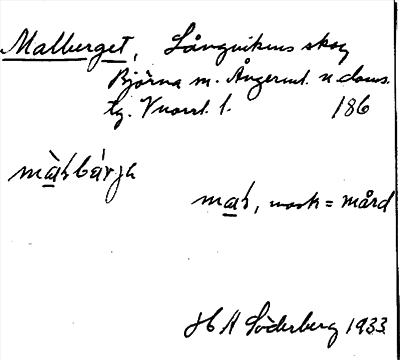 Malberget, Långvikens skog
Björna sn. Ångerml. n. doms.
tg. Vuoxl. 1. 186
màɫbárja
maɫ, mask = mård
H A Söderberg 1933